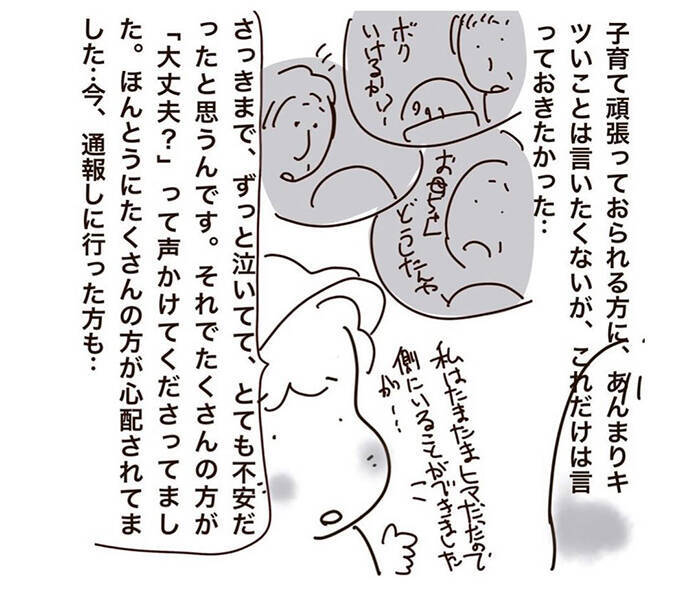 子育て頑張っておられる方に、あんまりキ
ツいことは言いたくないが、これだけは言
っておきたかった…
ボク
いけるか?!
お母ちゃん
どうしたんや
さっきまで、ずっと泣いてて、とても不安だ
ったと思うんです。それでたくさんの方が
「大丈夫？」って声かけてくださってまし
た。ほんとうにたくさんの方が心配されてま
した…今、通報しに行った方も…
私はたまたまヒマだったので
側にいることができました
が…